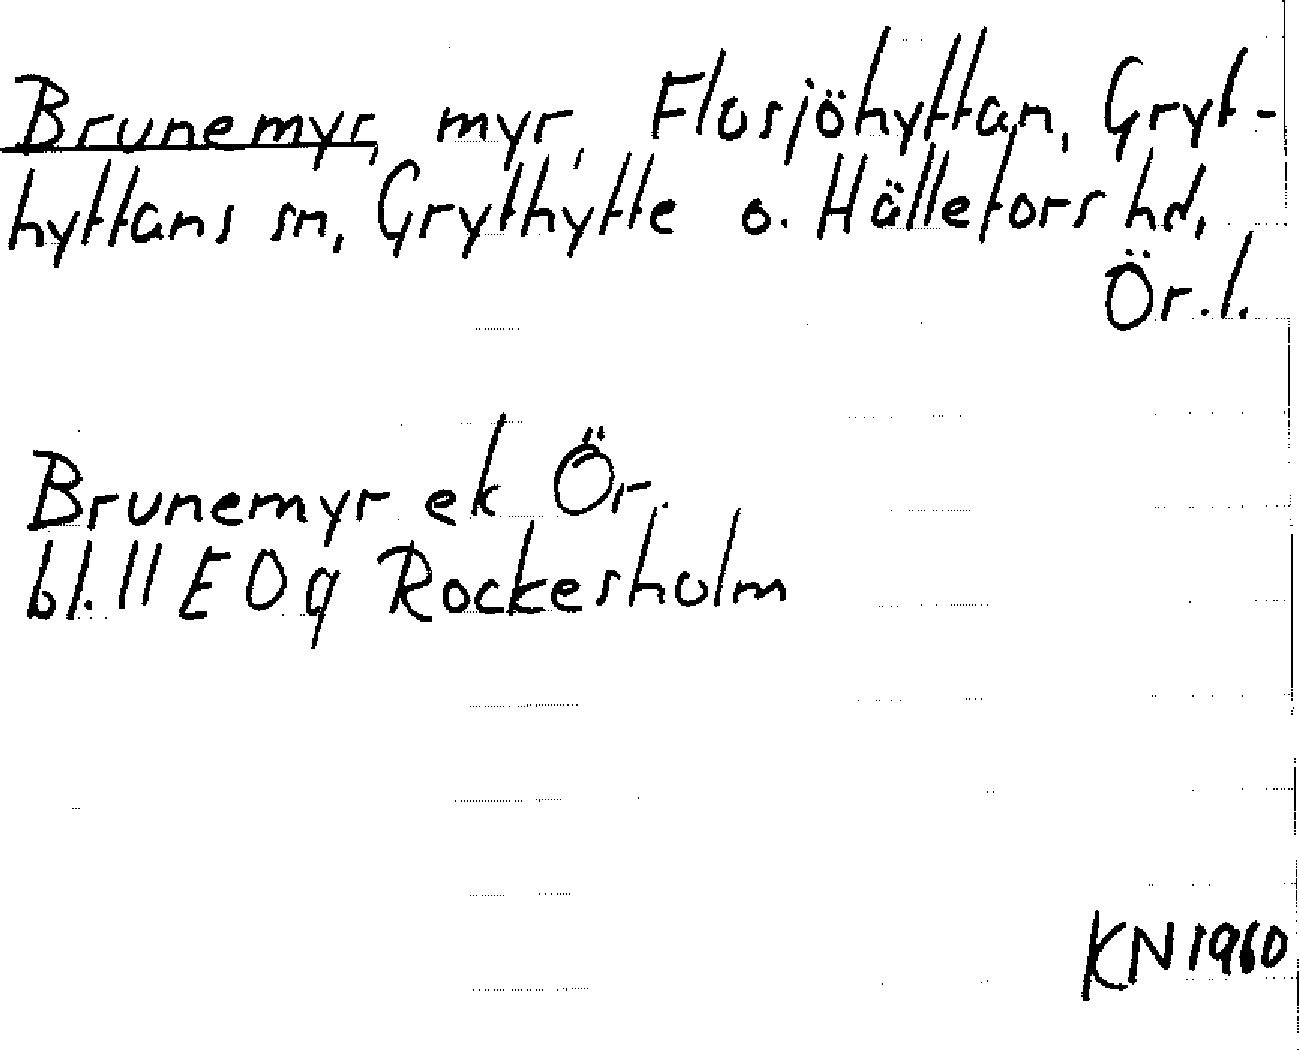 Brunemyr, myr, Flosjöhyttan, Gryt-
hyttans sn, Grythytte o. Hällefors hd,
Ör.l.
Brunemyr ek Ör.
bl. 11 E 0 q Rockesholm
KN 1960